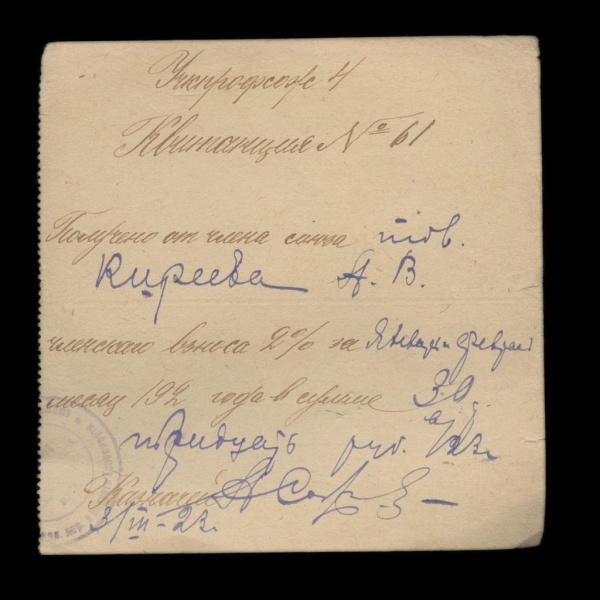 Учкпрофсож 4
Квитанция № 61
Получено от члена союза тов.
Киреева А. В.
членского взноса 2% за Январь и Феврал
месяц 192 года в сумме 30
тридцать руб. 23 г.
Казначей
3/III-23 г.